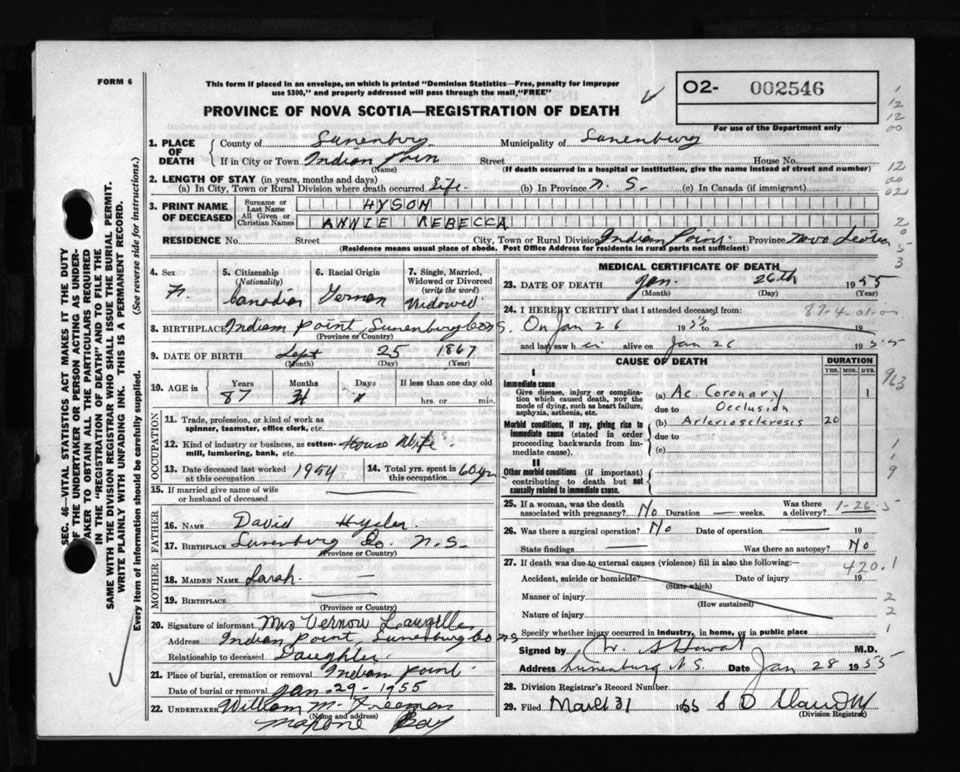 FORM 6
This form if placed in an envelope, on which is printed "Dominion Statistics—Free, penalty for improper
use $300," and properly addressed will pass through the mail, "FREE"
O2- 002546
For use of the Department only
PROVINCE OF NOVA SCOTIA—REGISTRATION OF DEATH
1. PLACE OF DEATH
County of Lunenburg Municipality of Lunenburg
If in City or Town Indian Poin Street House No.
(Name) (If death occurred in a hospital or institution, give the name instead of street and number)
2. LENGTH OF STAY (in years, months and days)
(a) In City, Town or Rural Division where death occurred Life (b) In Province N. S. (c) In Canada (if immigrant)
3. PRINT NAME OF DECEASED
Surname or Last Name HYSON
All Given or Christian Names ANNIE REBECCA
RESIDENCE No. Street City, Town or Rural Division Indian Point Province Nova Scotia
(Residence means usual place of abode. Post Office Address for residents in rural parts not sufficient)
4. Sex F.
5. Citizenship (Nationality) Canadian
6. Racial Origin German
7. Single, Married, Widowed or Divorced (write the word) Widowed
8. BIRTHPLACE Indian Point, Lunenburg Co N.S.
(Province or Country)
9. DATE OF BIRTH Sept 25 1867
(Month) (Day) (Year)
10. AGE in Years Months Days If less than one day old
87 4 1 hrs. or min.
OCCUPATION
11. Trade, profession, or kind of work as
spinner, teamster, office clerk, etc.
12. Kind of industry or business, as cotton-
mill, lumbering, bank, etc. House Wife
13. Date deceased last worked
at this occupation 1954
14. Total yrs. spent in
this occupation 60 yrs
15. If married give name of wife
or husband of deceased
FATHER
16. NAME David Hysler
17. BIRTHPLACE Lunenburg Co. N.S.
(Province or Country)
MOTHER
18. MAIDEN NAME Sarah —
19. BIRTHPLACE —
(Province or Country)
20. Signature of informant Mrs Vernon Langille
Address Indian Point, Lunenburg Co N S
Relationship to deceased Daughter
21. Place of burial, cremation or removal Indian Point
Date of burial or removal Jan-29-1955
22. UNDERTAKER William M. Freeman
(Name and address)
Mahone Bay
MEDICAL CERTIFICATE OF DEATH
23. DATE OF DEATH Jan. 26th 1955
(Month) (Day) (Year)
24. I HEREBY CERTIFY that I attended deceased from:
On Jan 26 1955 to 19
and last saw her alive on Jan 26 1955
CAUSE OF DEATH DURATION
YRS. MOS. DYS.
I
Immediate cause
Give disease, injury or complica-
tion which caused death, NOT the
mode of dying, such as heart failure,
asphyxia, asthenia, etc.
(a) Ac. Coronary 1
due to Occlusion
Morbid conditions, if any, giving rise to
immediate cause (stated in order
proceeding backwards from im-
mediate cause).
(b) Arteriosclerosis 20
due to
(c)
II
Other morbid conditions (if important)
contributing to death but not
causally related to immediate cause.
25. If a woman, was the death
associated with pregnancy? No Duration — weeks. Was there a delivery?
1-26-5
26. Was there a surgical operation? No Date of operation — 19
State findings — Was there an autopsy? No
27. If death was due to external causes (violence) fill in also the following:
420.1
Accident, suicide or homicide? Date of injury 19
(State which)
Manner of injury
(How sustained)
Nature of injury
Specify whether injury occurred in industry, in home, or in public place
Signed by M.D.
Address Lunenburg N.S. Date Jan 28 1955
28. Division Registrar's Record Number
29. Filed March 31 1955
(Division Registrar)
SEC. 46—VITAL STATISTICS ACT MAKES IT THE DUTY
OF THE UNDERTAKER OR PERSON ACTING AS UNDER-
TAKER TO OBTAIN ALL THE PARTICULARS REQUIRED
IN THE "REGISTRATION OF DEATH" AND TO FILE THE
SAME WITH THE DIVISION REGISTRAR WHO SHALL ISSUE THE BURIAL PERMIT.
WRITE PLAINLY WITH UNFADING INK. THIS IS A PERMANENT RECORD.
Every item of information should be carefully supplied. (See reverse side for instructions.)